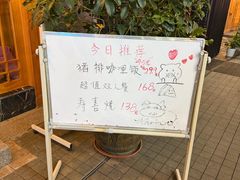 今日推荐
猪排咖喱饭 39.9
超值双人餐 168
寿喜烧 138